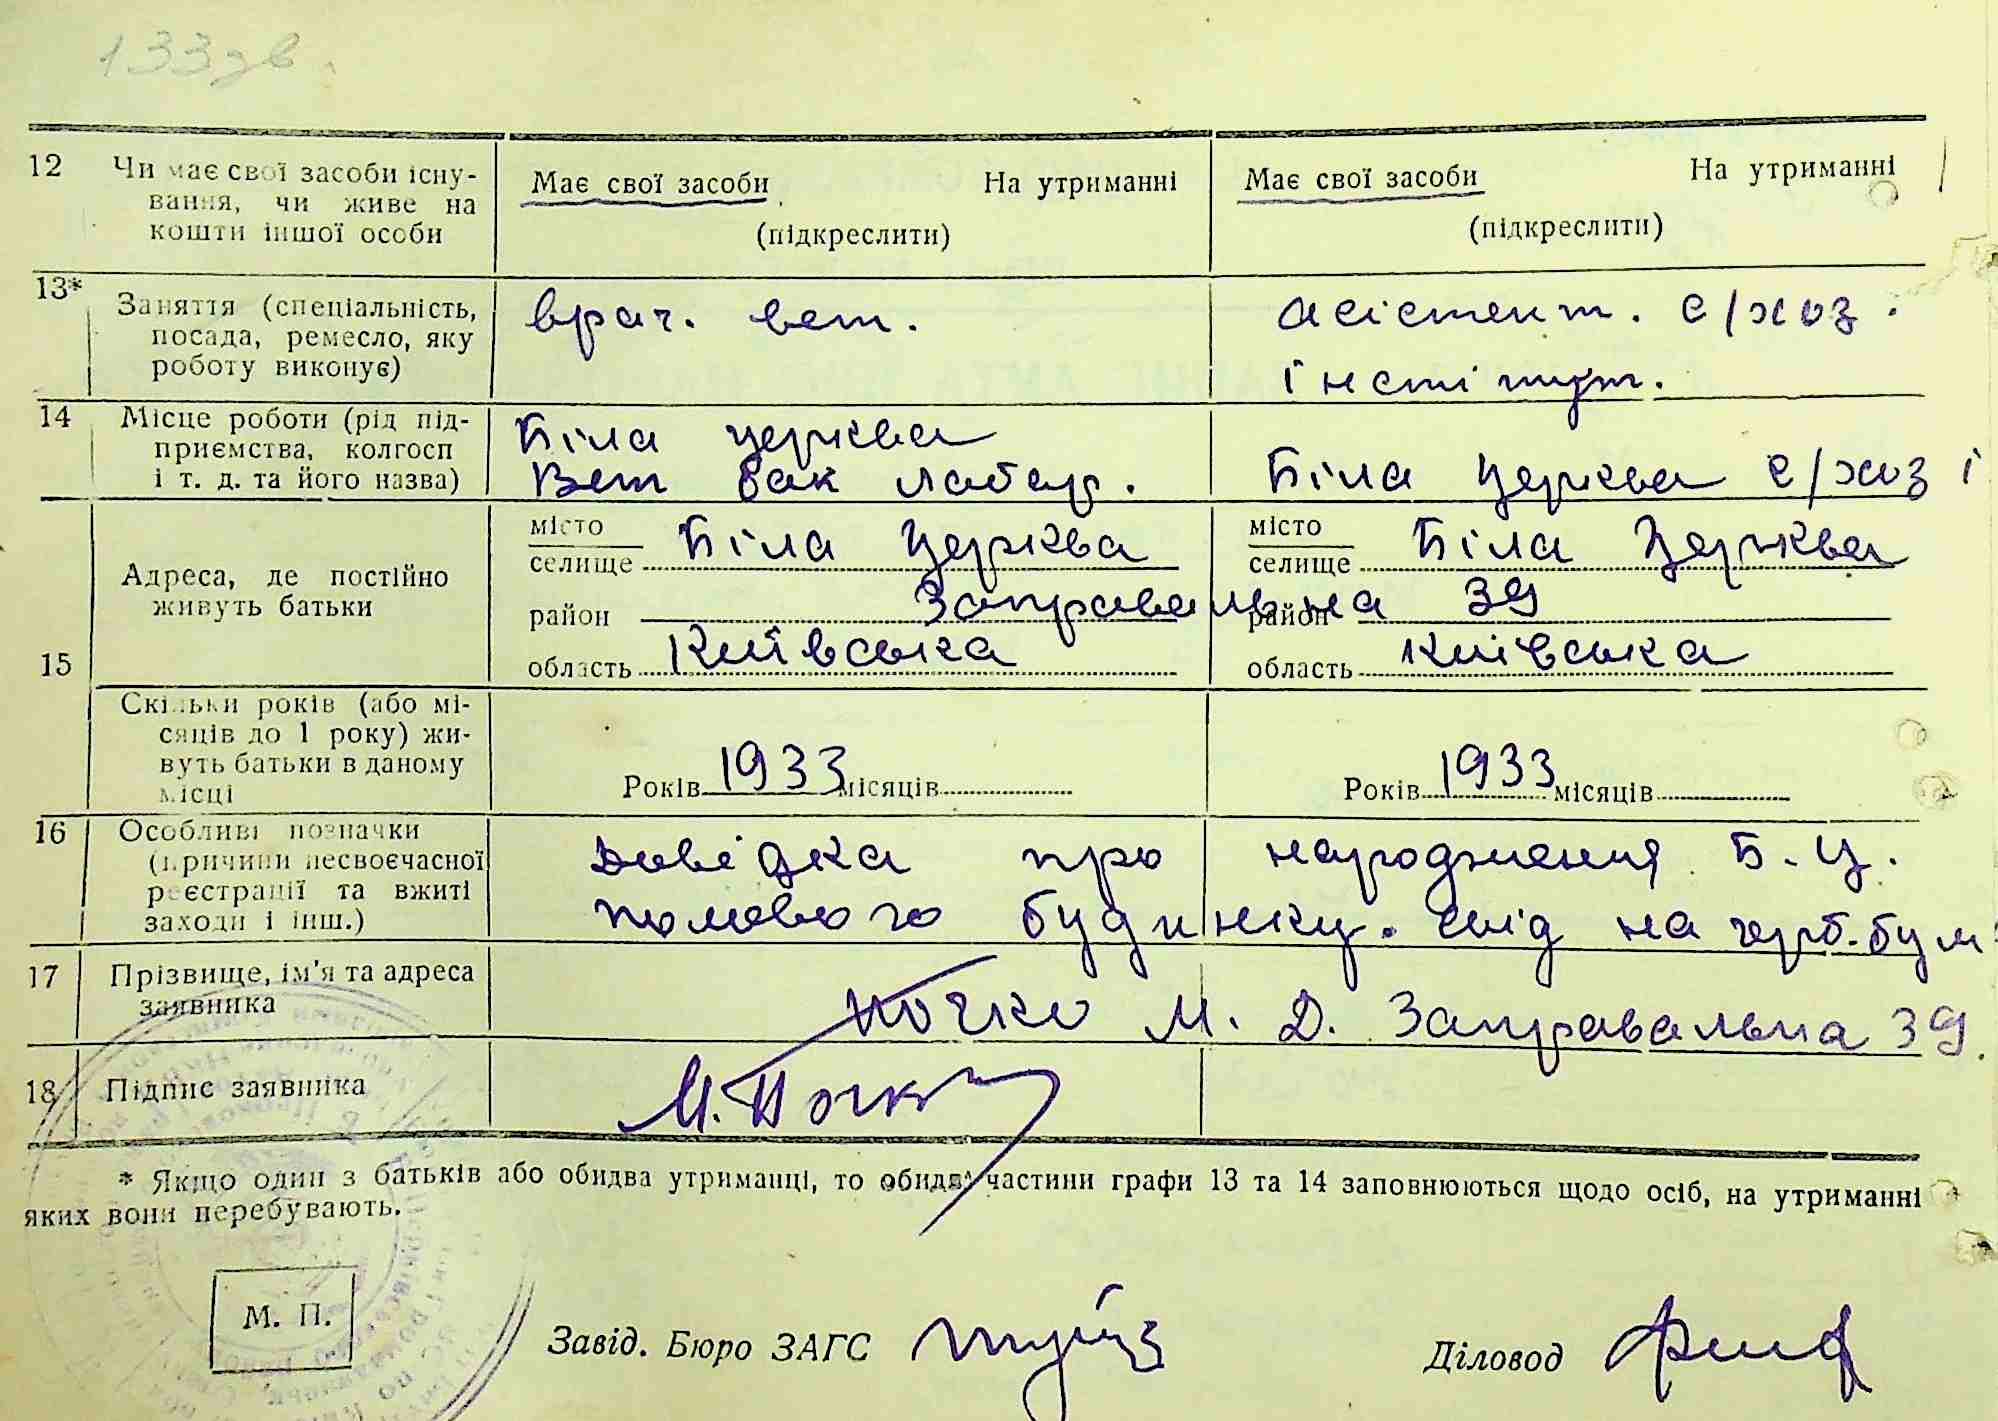 133 зв.
12 Чи має свої засоби існу-
вання, чи живе на
кошти іншої особи
Має свої засоби На утриманні
(підкреслити)
Має свої засоби На утриманні
(підкреслити)
13* Заняття (спеціальність,
посада, ремесло, яку
роботу виконує)
врач. вет.
асістент. с/хоз.
інстітут.
14 Місце роботи (рід під-
приємства, колгосп
і т. д. та його назва)
Біла церква
Вет бак лабор.
Біла Церква с/хоз і
15 Адреса, де постійно
живуть батьки
місто
селище Біла Церква
район Заправальна 39
область Київська
місто
селище Біла Церква
район
область Київська
Скільки років (або мі-
сяців до 1 року) жи-
вуть батьки в даному
місці
Років 1933 місяців
Років 1933 місяців
16 Особливі позначки
(причини несвоєчасної
реєстрації та вжиті
заходи і інш.)
Довідка про народження Б. Ц.
полового будинку. на герб. бум
17 Прізвище, ім'я та адреса
заявника
Почко М. Д. Заправальна 39.
18 Підпис заявника
М. Почк
* Якщо один з батьків або обидва утриманці, то обидві частини графи 13 та 14 заповнюються щодо осіб, на утриманні
яких вони перебувають.
М. П.
Завід. Бюро ЗАГС
Діловод